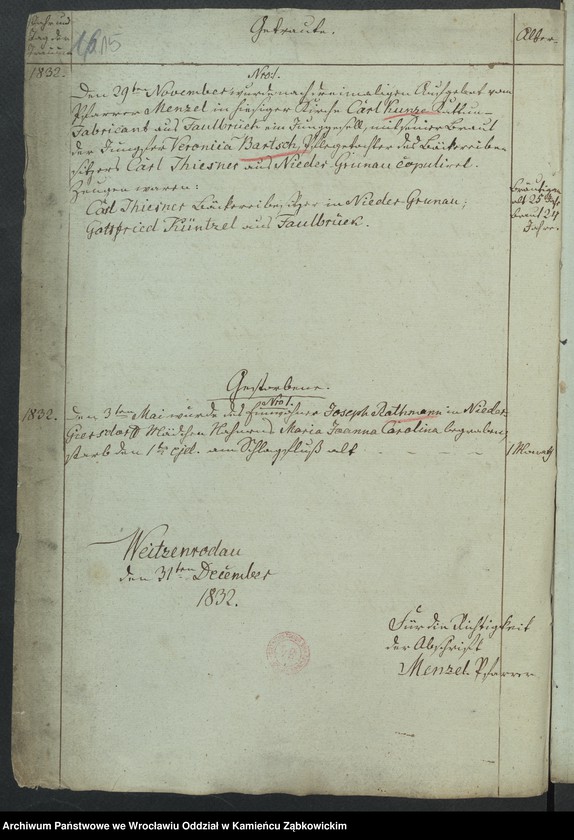 Jahr und
Tag der
Trauung
1615
Getraute.
Alter.
1832.
Nro 1.
Den 29ten November wurde nach dreimaligen Aufgebot vom
Pfarrer Menzel in hiesiger Kirche Carl Kunze Kattun-
Fabricant aus Faulbrück ein Junggesell, mit seiner Braut
der Jungfer Veronica Bartsch, Pflegetochter des Bäckereibe-
sitzers Carl Thiesner aus Nieder-Grunau copulirt.
Zeugen waren:
Carl Thiesner Bäckereibesitzer in Nieder-Grunau;
Gottfried Küntzel aus Faulbrück.
Bräutigam
alt 25 Jahr.
Braut 24
Jahr.
Gestorbene.
Nro 1.
1832.
Den 3ten Mai wurde des Einwohner Joseph Rathmann in Nieder
Giersdorff Mädchen Nahmens Maria Joanna Carolina begraben,
starb den 1ten ejd. am Schlagfluß alt
1 Monath
Weitzenrodau
den 31ten December
1832.
Für die Richtigkeit
der Abschrift
Menzel. Pfarrer
Archiwum Państwowe we Wrocławiu Oddział w Kamieńcu Ząbkowickim